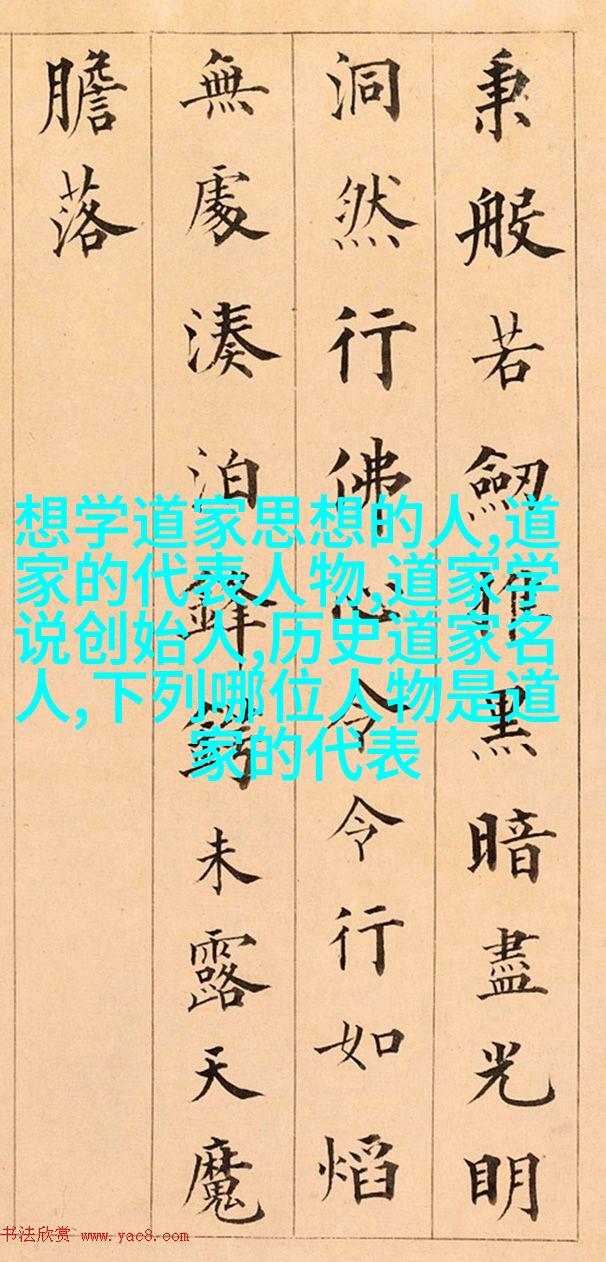 秉般若劒摧黑暗盡光明
洞然行佛心令令行如熖
無處湊泊鋒鍔未露天魔
膽落
想学道家思想的人,道
家的代表人物,道家学
说创始人,历史道家名
人,下列哪位人物是道
家的代表
书法欣赏 www.yac8.com